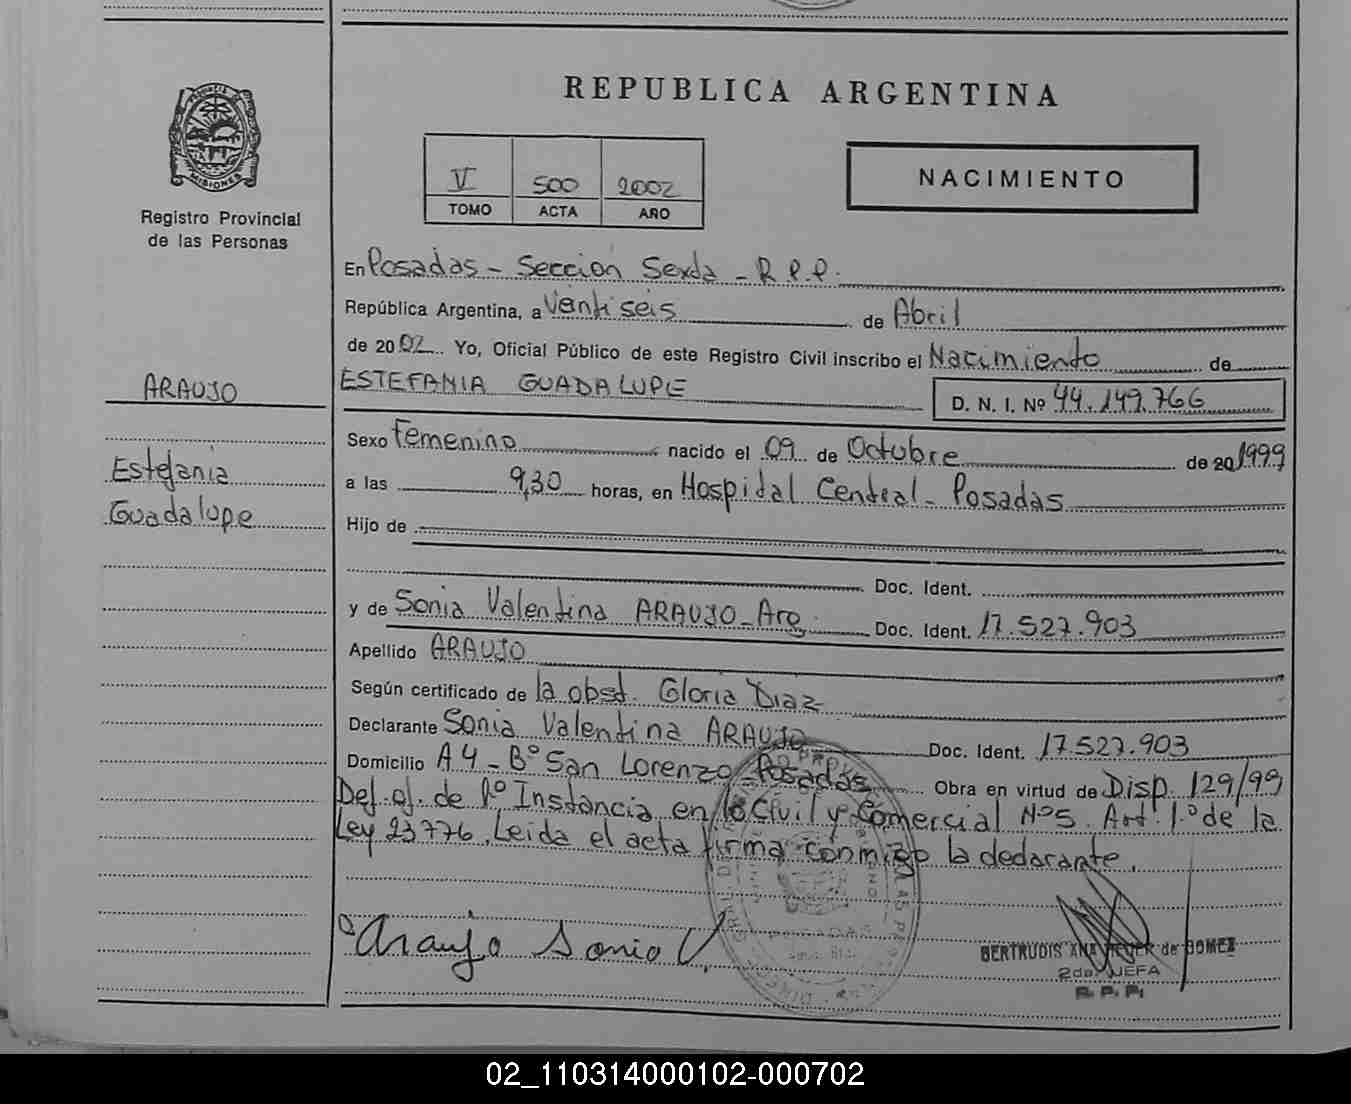 REPUBLICA ARGENTINA
PROVINCIA DE
MISIONES
Registro Provincial
de las Personas
V 500 2002
TOMO ACTA AÑO
NACIMIENTO
En Posadas - Sección Sexta - R.P.P.
República Argentina, a Ventiseis de Abril
de 2002. Yo, Oficial Público de este Registro Civil inscribo el Nacimiento de
ARAUJO
Estefania
Guadalupe
ESTEFANIA GUADALUPE D. N. I. Nº 44.149.766
Sexo Femenino nacido el 09 de Octubre de 20 1999
a las 9,30 horas, en Hospital Central - Posadas
Hijo de
Doc. Ident.
y de Sonia Valentina ARAUJO - Arg. Doc. Ident. 17.527.903
Apellido ARAUJO
Según certificado de la obst. Gloria Diaz
Declarante Sonia Valentina ARAUJO Doc. Ident. 17.527.903
Domicilio A 4 - Bº San Lorenzo - Posadas Obra en virtud de Disp. 129/99
Def. of. de 1º Instancia en lo Civil y Comercial Nº 5. Art. 1.º de la
Ley 23776. Leida el acta firma conmigo la declarante.
Araujo Sonia V.
BERTRUDIS ANA de GOMEZ
2da. JEFA
R. P. P.
02_110314000102-000702